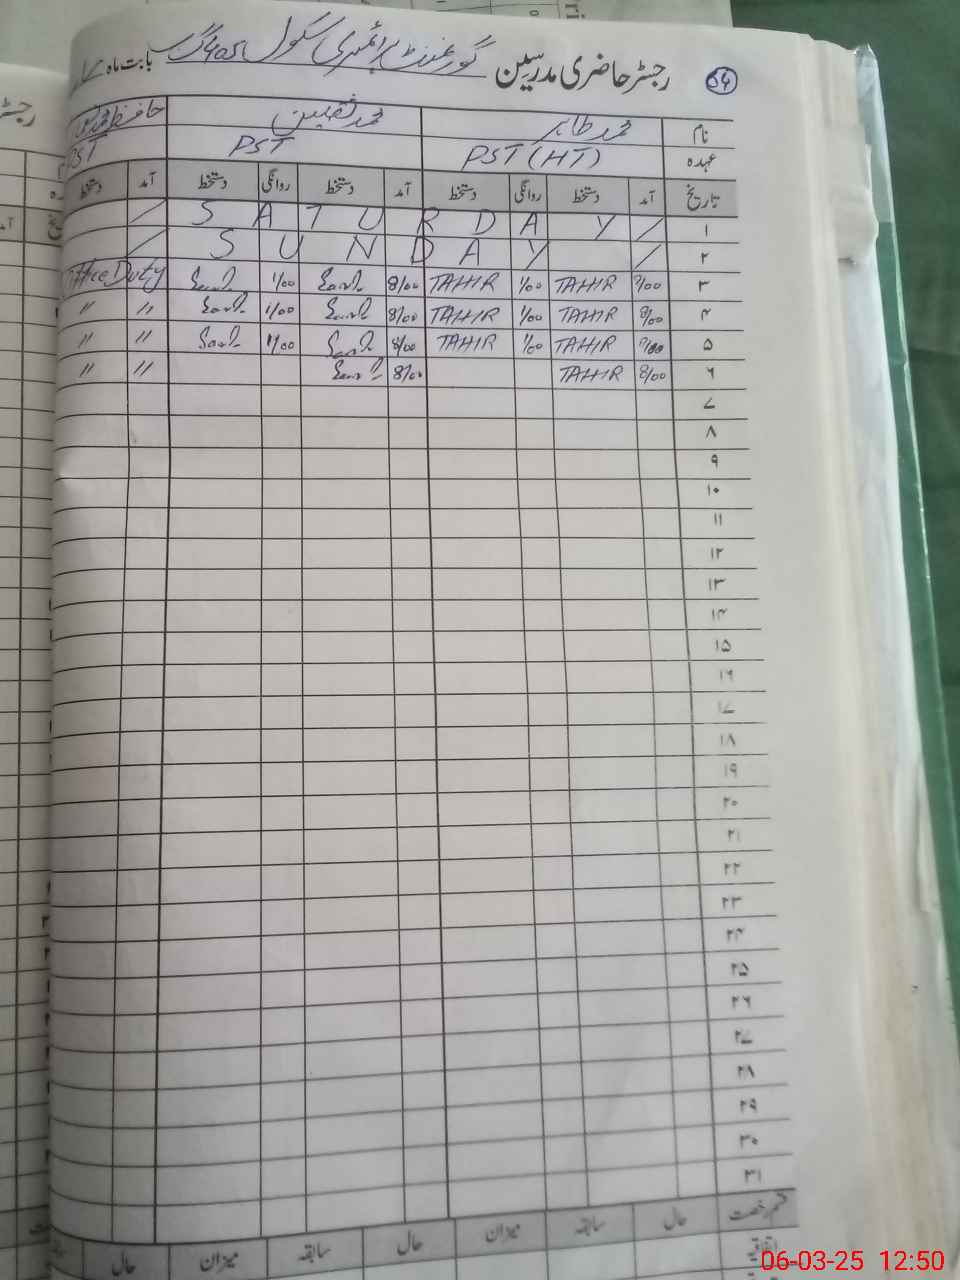 رجسٹر حاضری مدرسین گورنمنٹ پرائمری سکول 405 گ ب بابت ماہ
54
نام محمد طاہر محمد ثقلین حافظ محمد
عہدہ PST (HT) PST PST
تاریخ آمد دستخط روانگی دستخط آمد دستخط روانگی دستخط آمد دستخط
۱ / S A T U R D A Y /
۲ / S U N D A Y /
۳ 8/00 TAHIR 1/00 TAHIR 8/00 1/00 Office Duty
۴ 8/00 TAHIR 1/00 TAHIR 8/00 1/00 " "
۵ 8/00 TAHIR 1/00 TAHIR 8/00 1/00 " "
۶ 8/00 TAHIR 8/00 " "
۷
۸
۹
۱۰
۱۱
۱۲
۱۳
۱۴
۱۵
۱۶
۱۷
۱۸
۱۹
۲۰
۲۱
۲۲
۲۳
۲۴
۲۵
۲۶
۲۷
۲۸
۲۹
۳۰
۳۱
قسم رخصت حال سابقہ میزان حال سابقہ میزان حال
اتفاقیہ
06-03-25 12:50